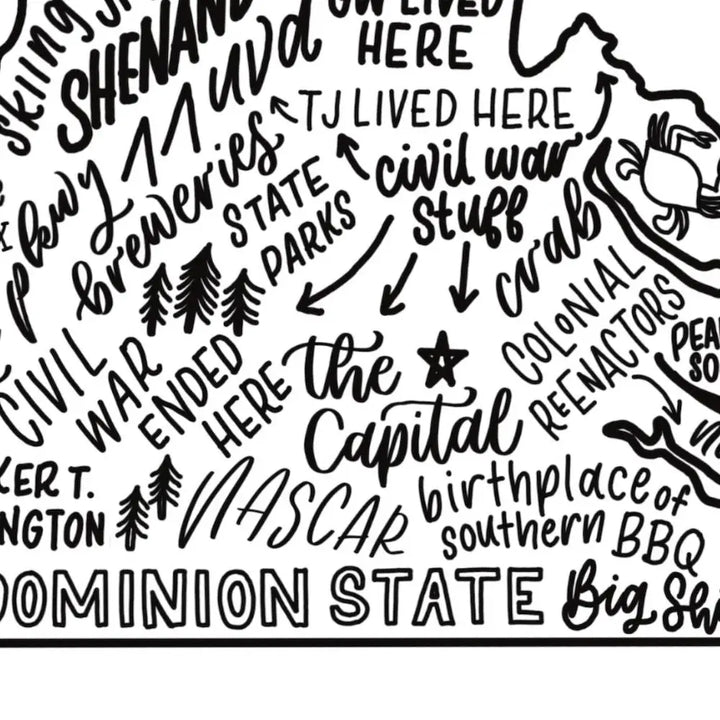 GW LIVED
HERE
SKIING
SHENAND
uvd
TJ LIVED HERE
civil war
stuff
pkwy
breweries
STATE
PARKS
crab
COLONIAL
REENACTORS
PEA
SO
CIVIL
WAR
ENDED
HERE
the
Capital
KER T.
NGTON
NASCAR
birthplace of
southern BBQ
DOMINION STATE
Big Shi